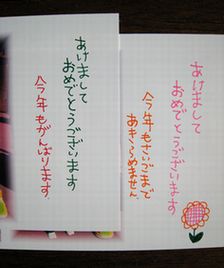 あけまして
おめでとうございます
今年もがんばります。
あけまして
おめでとうございます
今年もさいごまで
あきらめません。